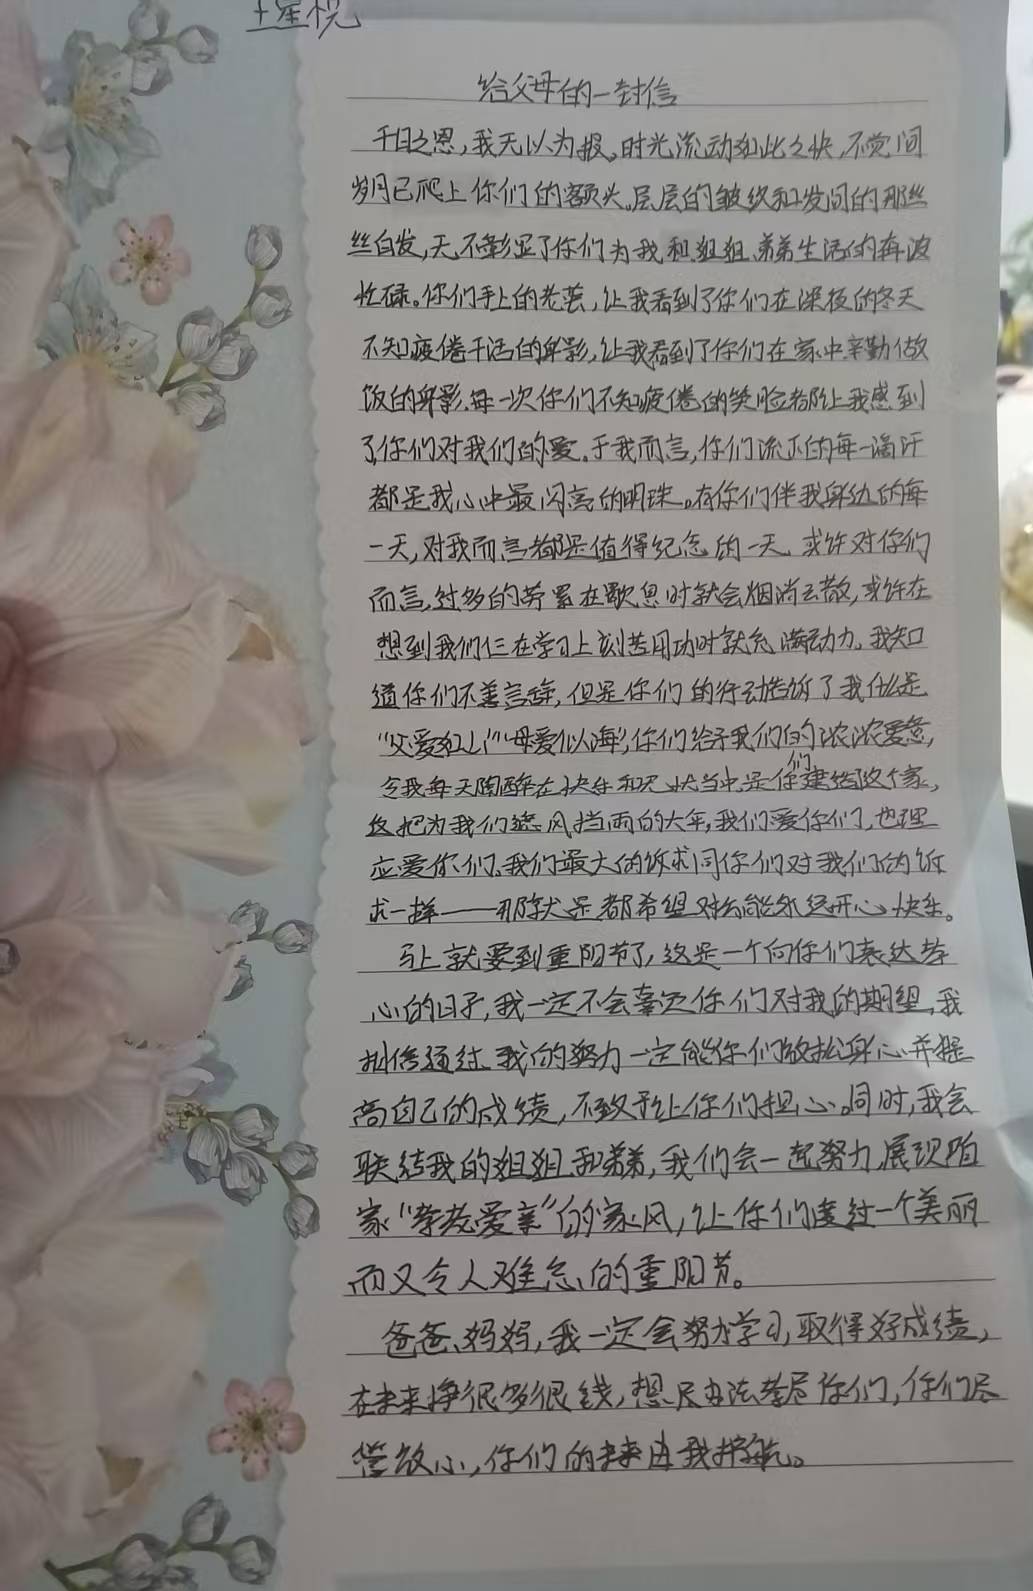 给父母的一封信
千日之恩,我无以为报。时光流动如此之快,不觉间
岁月已爬上你们的额头。层层的皱纹和发间的那丝
丝白发,无不彰显了你们为我和姐姐、弟弟生活的奔波
忙碌。你们手上的老茧,让我看到了你们在深夜的冬天
不知疲倦干活的身影,让我看到了你们在家中辛勤做
饭的身影。每一次你们不知疲倦的笑脸都让我感到
了你们对我们的爱。于我而言,你们流下的每一滴汗
都是我心中最闪亮的明珠。有你们伴我身边的每
一天,对我而言都是值得纪念的一天。或许对你们
而言,过多的劳累在歇息时就会烟消云散,或许在
想到我们仨在学习上刻苦用功时就充满动力。我知
道你们不善言辞,但是你们的行动告诉了我什么是
“父爱如山”“母爱似海”,你们给予我们的浓浓爱意,
令我每天陶醉在快乐和 当中。是你们建造这个家,
这把为我们遮风挡雨的大伞,我们爱你们,也理
应爱你们。我们最大的诉求同你们对我们的诉
求一样——那就是都希望对方能永远开心、快乐。
马上就要到重阳节了,这是一个向你们表达孝
心的日子,我一定不会辜负你们对我的期望,我
相信通过我的努力一定能你们放松身心并提
高自己的成绩,不致于让你们担心。同时,我会
联结我的姐姐和弟弟,我们会一起努力,展现陌
家“孝老爱亲”的家风,让你们度过一个美丽
而又令人难忘的重阳节。
爸爸、妈妈,我一定会努力学习,取得好成绩,
在未来挣很多很钱,想尽办法孝尽你们,你们尽
管放心,你们的未来由我护航。